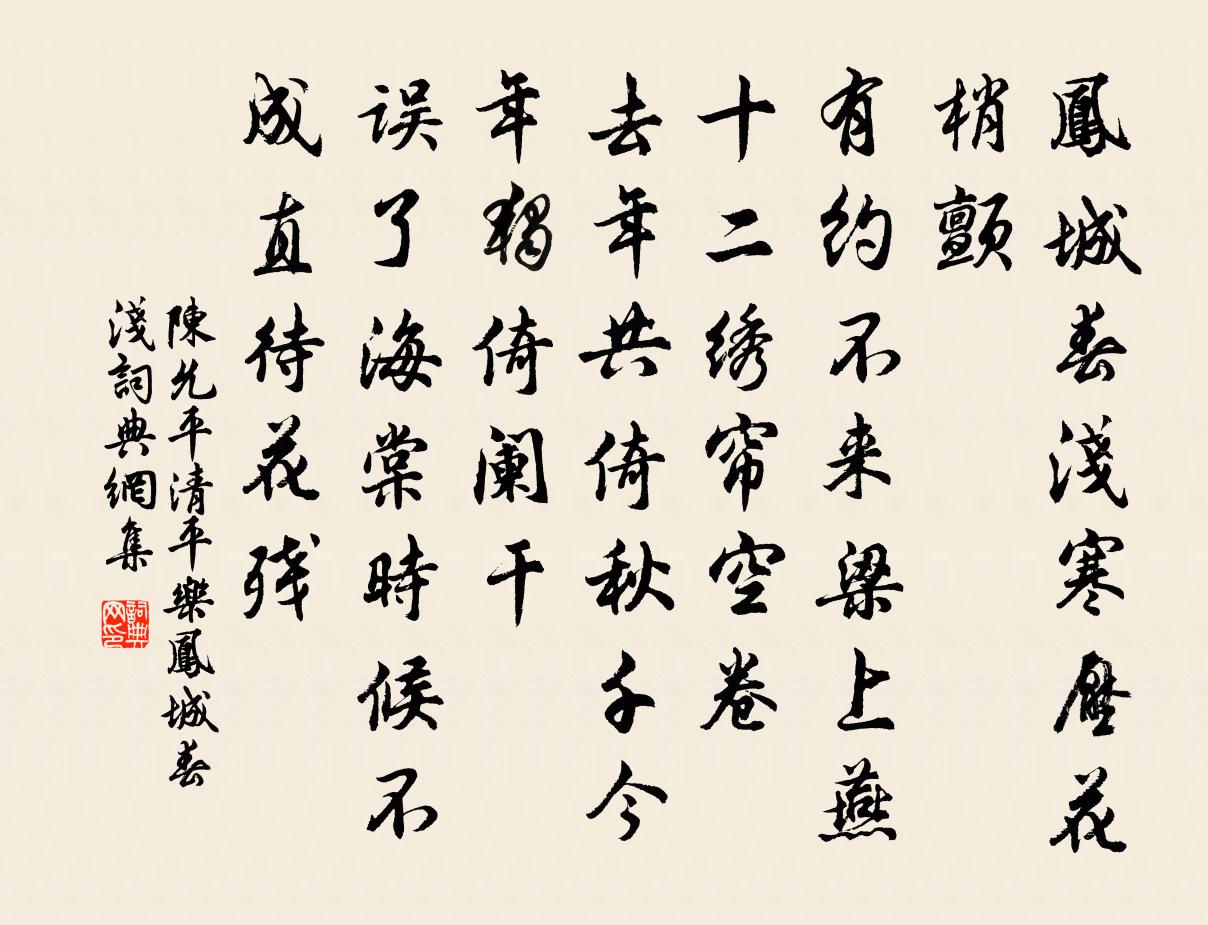 鳳城春淺寒壓花
梢顫
有約不来梁上燕
十二绣帘空卷
去年共倚秋千今
年獨倚阑干
误了海棠時候不
成直待花残
陳允平清平樂鳳城春
淺詞典網集
詞典网印